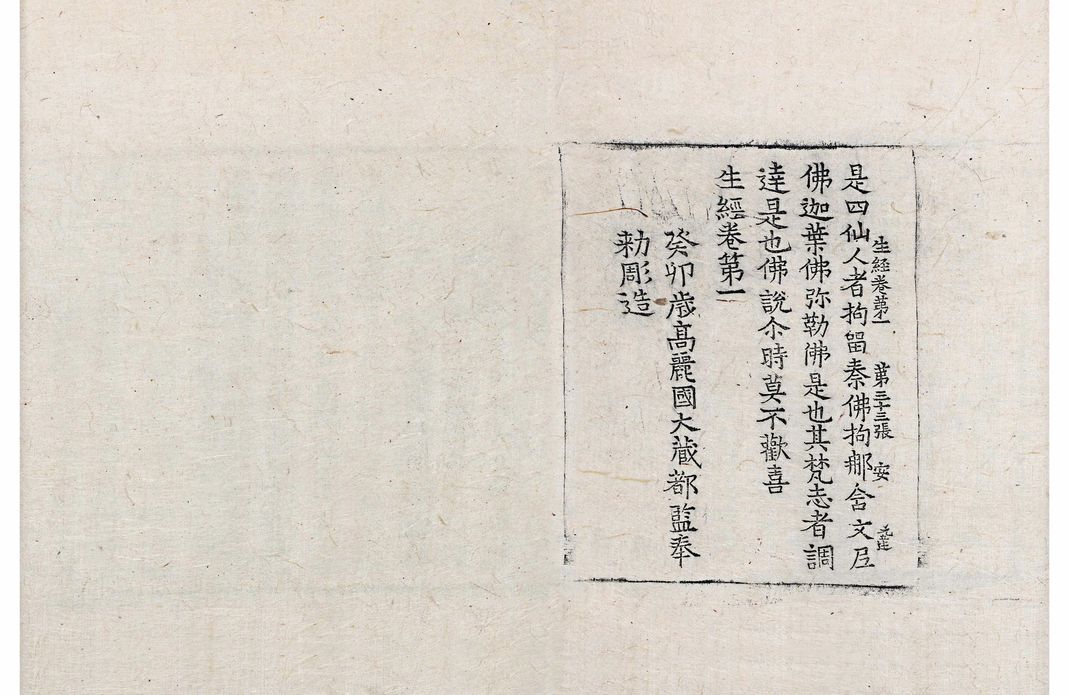 生経卷第一 第三十三張 安
是四仙人者拘留秦佛拘那含文尼
佛迦葉佛弥勒佛是也其梵志者調
達是也佛說尒時莫不歡喜
生經卷第一
癸卯歳高麗國大藏都監奉
勑彫造